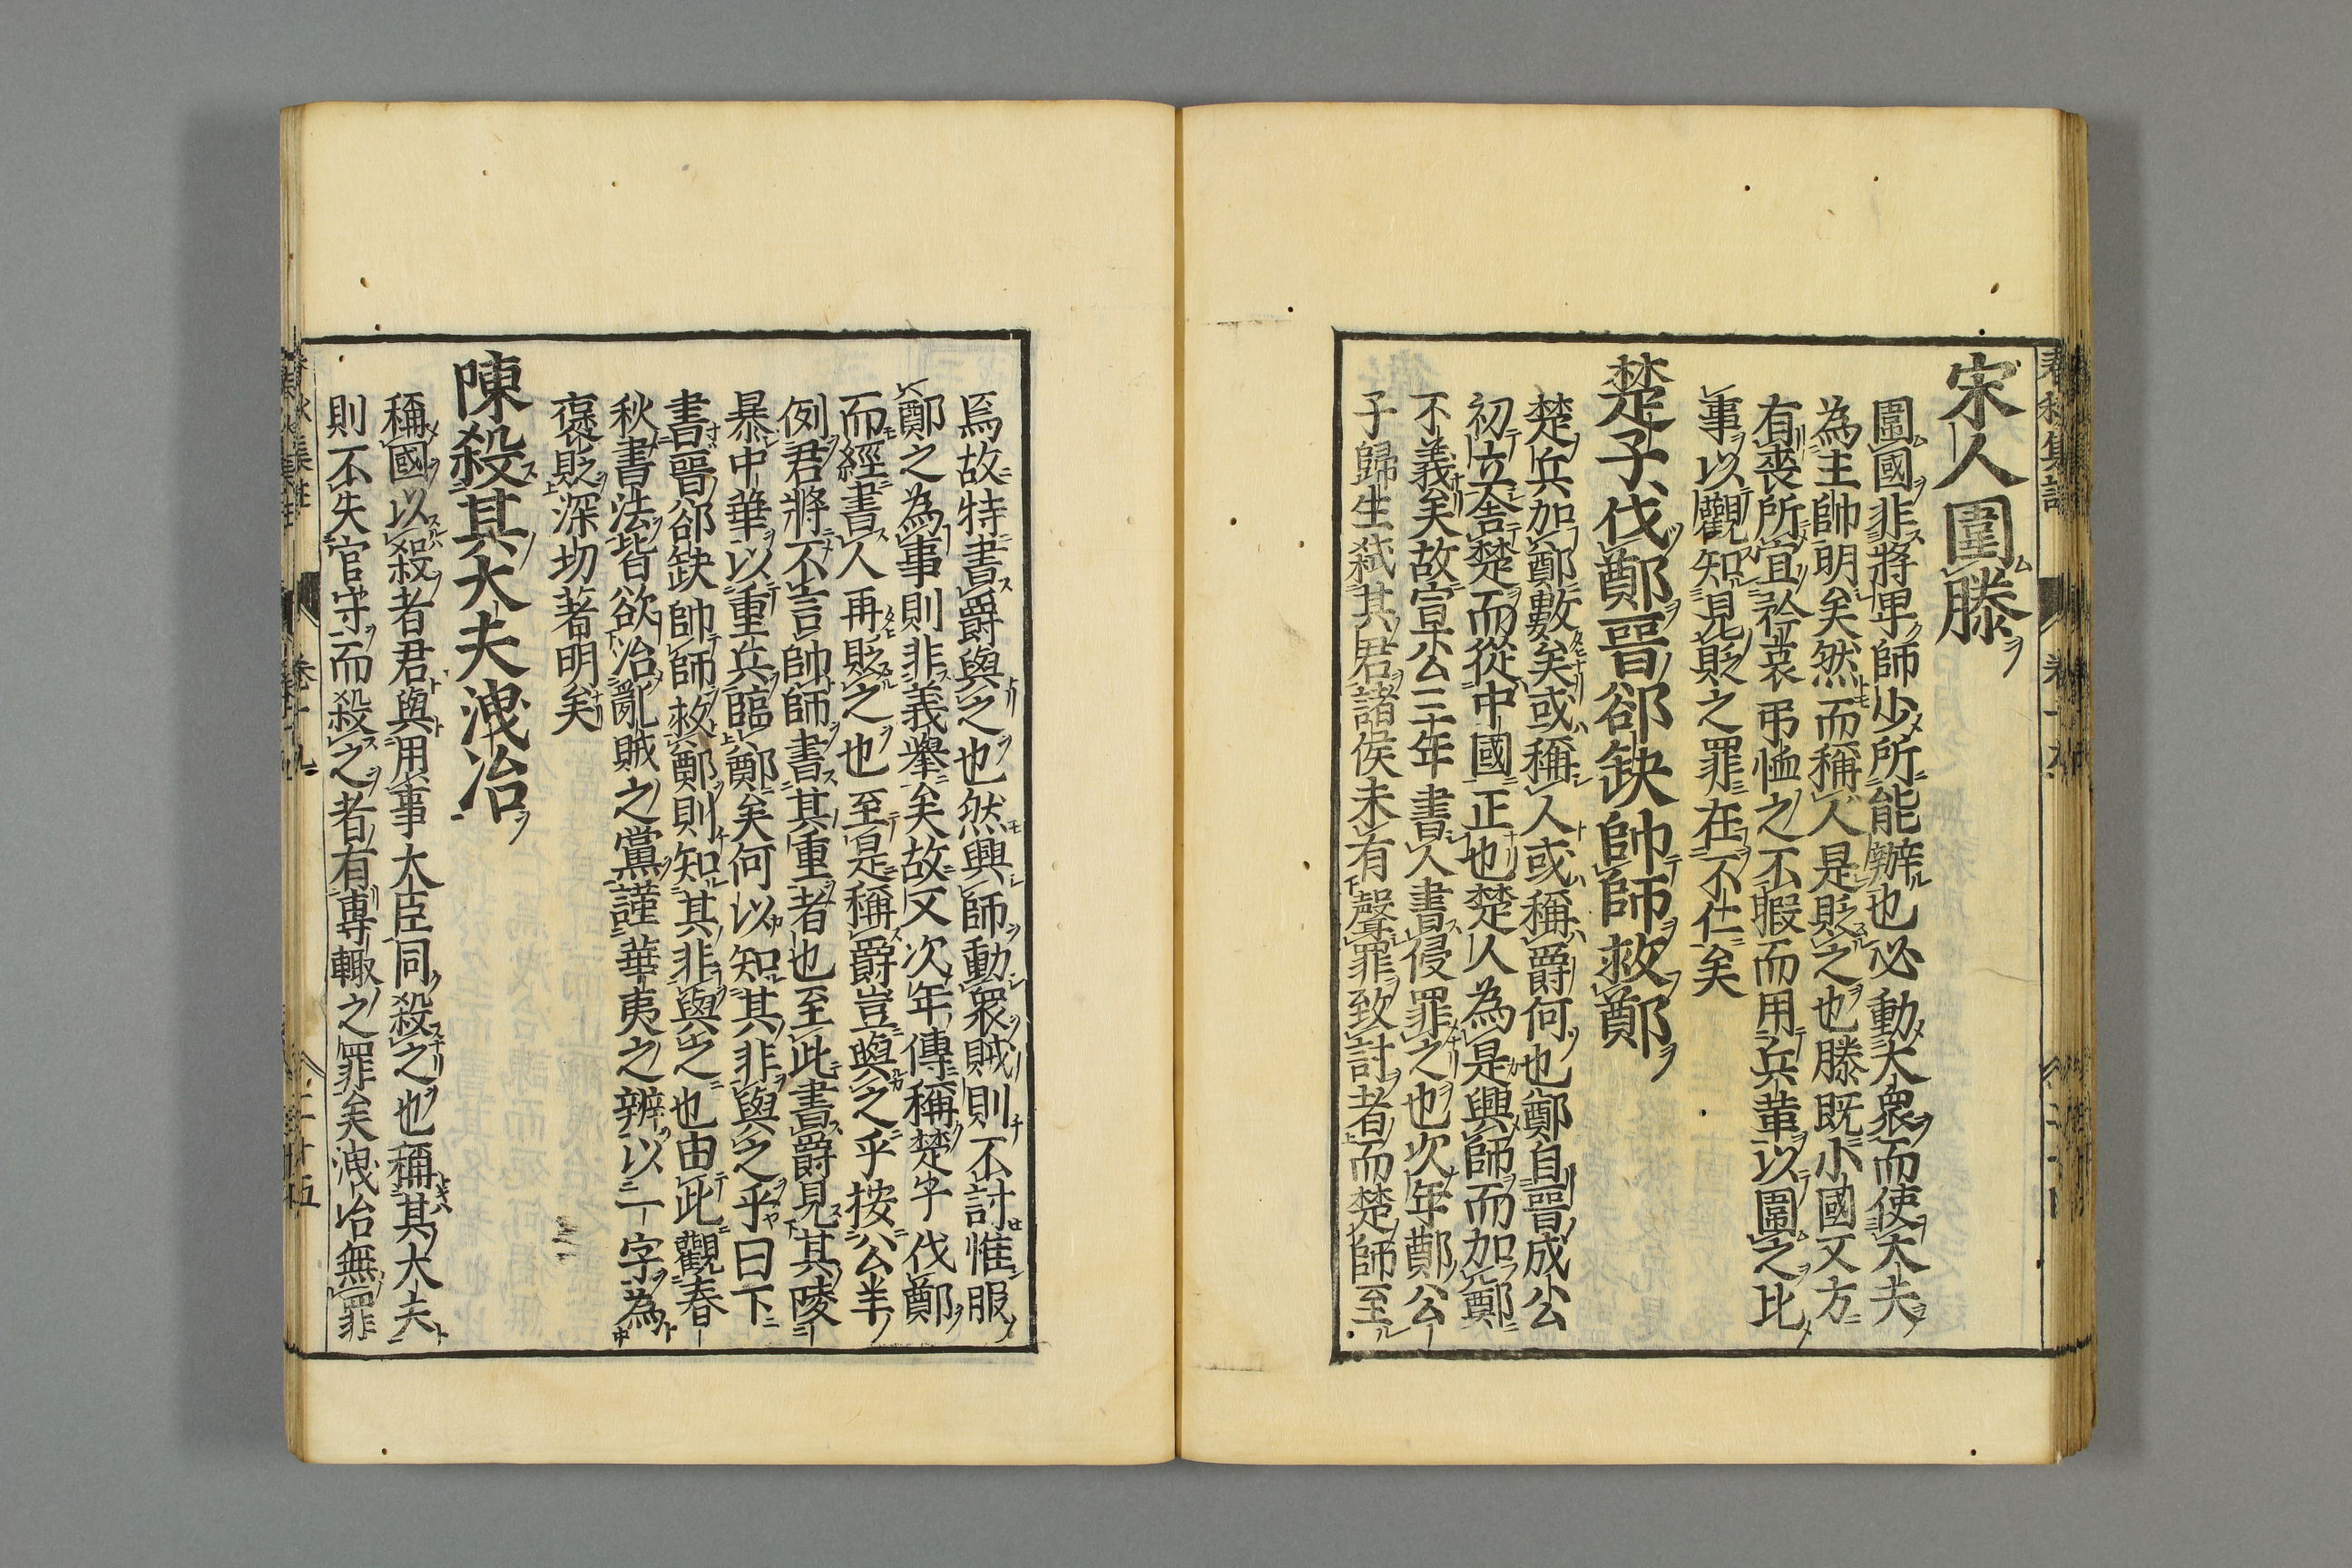 宋人圍滕
圍國非將卑師少所能辦也必動大衆而使大夫
為主帥明矣然而稱人是貶之也滕既小國又方
有喪所宜矜哀弔恤之不暇而用兵革以圍之比
事以觀知見貶之罪在不仁矣
楚子伐鄭晉郤缺帥師救鄭
楚兵加鄭數矣或稱人或稱爵何也鄭自晉成公
初立舍楚而從中國正也楚人為是興師而加鄭
不義矣故宣公三年書人書侵罪之也次年鄭公
子歸生弒其君諸侯未有聲罪致討者而楚師至
焉故特書爵與之也然興師動衆賊則不討惟服
鄭之為事則非義舉矣故又次年傳稱楚子伐鄭
而經書人再貶之也至是稱爵豈與之乎按公羊
例君將不言帥師書其重者也至此書爵見其陵
暴中華以重兵臨鄭矣何以知其非與之乎曰下
書晉郤缺帥師救鄭則知其非與之也由此觀春
秋書法皆欲治亂賊之黨謹華夷之辨以一字為
褒貶深切著明矣
陳殺其大夫洩冶
稱國以殺者君與用事大臣同殺之也稱其大夫
則不失官守而殺之者有專輙之罪矣洩冶無罪
卷十九
二十五